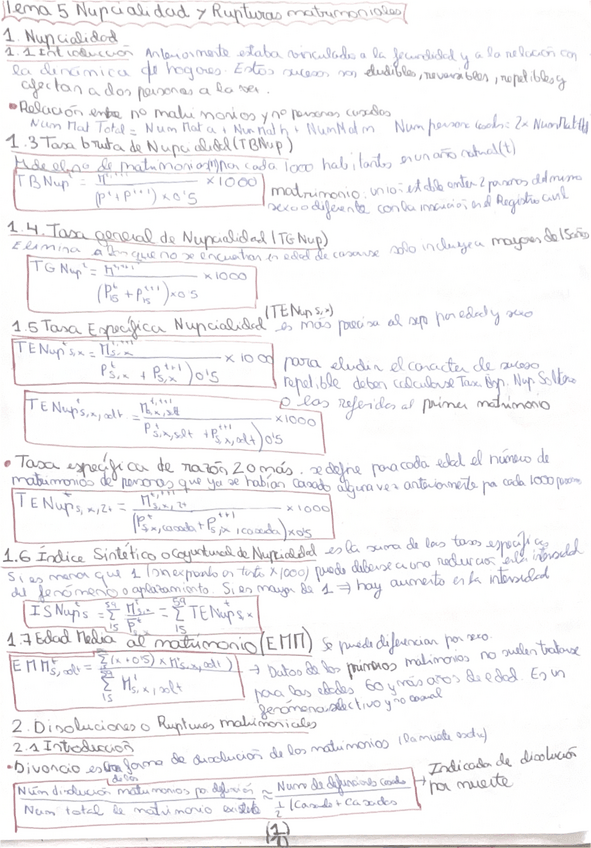 Tema 5 Nupcialidad y Rupturas matrimoniales
1. Nupcialidad
1.1 Introducción Anteriormente estaba vinculado a la fecundidad y a la relación con
la dinámica de hogares. Estos sucesos son eludibles, reversibles, repetibles y
afectan a dos personas a la vez.
• Relación entre no matrimonios y no personas casadas
Num Mat Total = Num Mat a + Num Mat h + Num Mat m Num person casads: 2x Num Mat
1.3 Tasa bruta de Nupcialidad (TBNup)
Mide el no de matrimonios (M) por cada 1000 habitantes en un año natural (t)
TBNup = M^t,t+1 / (P^t + P^t+1) x 0'5 x 1000
matrimonio: unión estable entre 2 personas del mismo
sexo o diferente con la inscripción en el Registro Civil
1.4. Tasa general de Nupcialidad (TGNup)
Elimina a los que no se encuentran en edad de casarse solo incluye a mayores de 15 años
TGNup^t = M^t,t+1 / (P^t 15 + P^t+1 15) x 0'5 x 1000
1.5 Tasa Específica Nupcialidad (TENup s,x) es más precisa al sep por edad y sexo
TENup^t s,x = M^t,t+1 s,x / (P^t s,x + P^t+1 s,x) 0'5 x 1000
para eludir el caracter de suceso
repetible deben calcularse Tas Esp. Nup Soltero
o las referidas al primer matrimonio
TENup^t s,x,solt = M^t,t+1 s,x,solt / (P^t s,x,solt + P^t+1 s,x,solt) 0'5 x 1000
• Tasa específica de razón 2 o más. se define para cada edad el número de
matrimonios de personas que ya se habían casado alguna vez anteriormente por cada 1000 personas
TENup^t s,x,2+ = M^t,t+1 s,x,2+ / (P^t s,x,casada + P^t+1 s,x,casada) x 0'5 x 1000
1.6 Índice Sintético o Coyuntural de Nupcialidad es la suma de las tasas específicas
Si es menor que 1 (x1000) puede deberse a una reducción en la intensidad
del fenómeno o aplazamiento. Si es mayor de 1 ⇒ hay aumento en la intensidad
ISNup^t s = Σ 15 59 M^t s,x / P^t = Σ 15 59 TENup^t s,x
1.7 Edad Media al matrimonio (EMM) Se puede diferenciar por sexo.
EMM^t s,solt = Σ (x + 0'5) x M^t s,x,solt / Σ 15 59 M^t s,x,solt
→ Datos de los primeros matrimonios no suelen tratarse
para las edades 60 y más años de edad. Es un
fenómeno selectivo y no casual
2. Disoluciones o Rupturas matrimoniales
2.1 Introducción
• Divorcio es otra forma de disolución de los matrimonios (la muerte exclu)
Núm disolución matrimonios por defunción / Num total de matrimonio existente ≈ Num de defunciones casados / 1/2 (Casadas + Casados
→ Indicador de disolución
por muerte
(1)